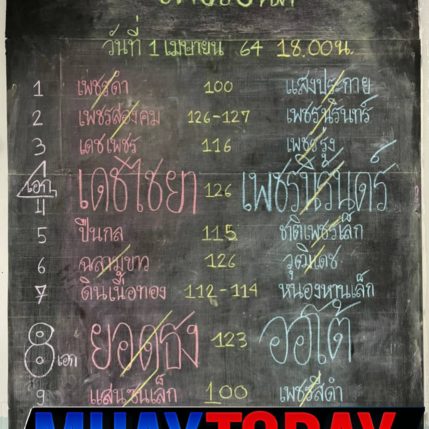 วันที่ 1 เมษายน 64 18.00น.
1 เพชรดำ 100 แสงประกาย
2 เพชรส่องคม 126-127 เพชรนรินทร์
3 เดชเพชร 116 เพชรรุ่ง
4 เอก เดชไชยา 126 เพชรนิรันดร์
5 ปืนกล 115 ชาติเพชรเล็ก
6 ฉลามขาว 126 วุฒิเดช
7 ดินเนื้อทอง 112-114 หนองหานเล็ก
8 เอก ยอดธง 123 ออโต้
9 แสนซนเล็ก 100 เพชรสีดำ
MUAYTODAY